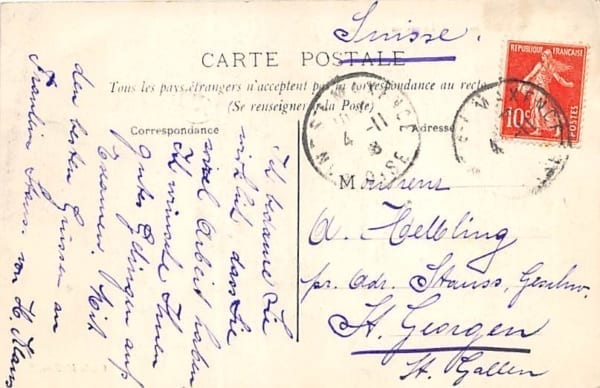 Suisse.
CARTE POSTALE
Tous les pays étrangers n'acceptent pas la correspondance au recto
(Se renseigner à la Poste)
Correspondance
Adresse
RÉPUBLIQUE FRANÇAISE
10c
POSTES
4 -11
OISE
Monsieur
A. Helbling
pr. Adr. Stauss, Geschw.
St. Georgen
St. Gallen
Ich bedaure Sie
wirklich dass Sie
viel Arbeit haben
Ich wünsche Ihnen
gutes Gelingen aufs
Examen. Mit
den besten Grüssen an
Fräulein Stauss. von H. Klaus